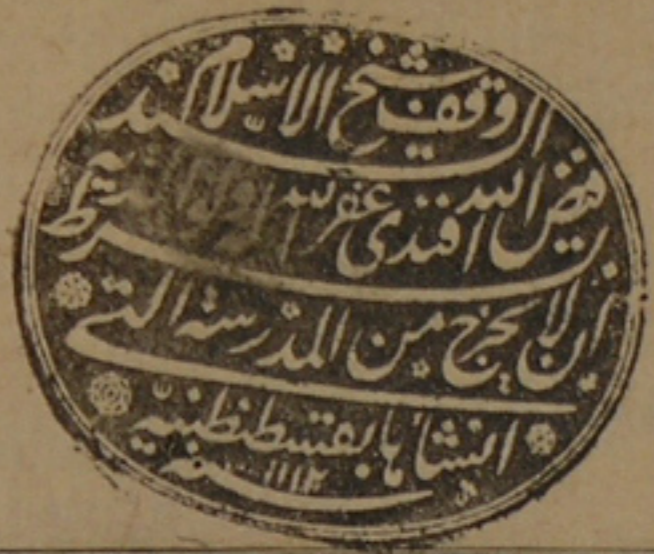 وقف شيخ الاسلام السيد
فيض الله افندى غفر الله بشرط
ان لا يخرج من المدرسة التى
انشأها بقسطنطنيه
سنه ١١١٢